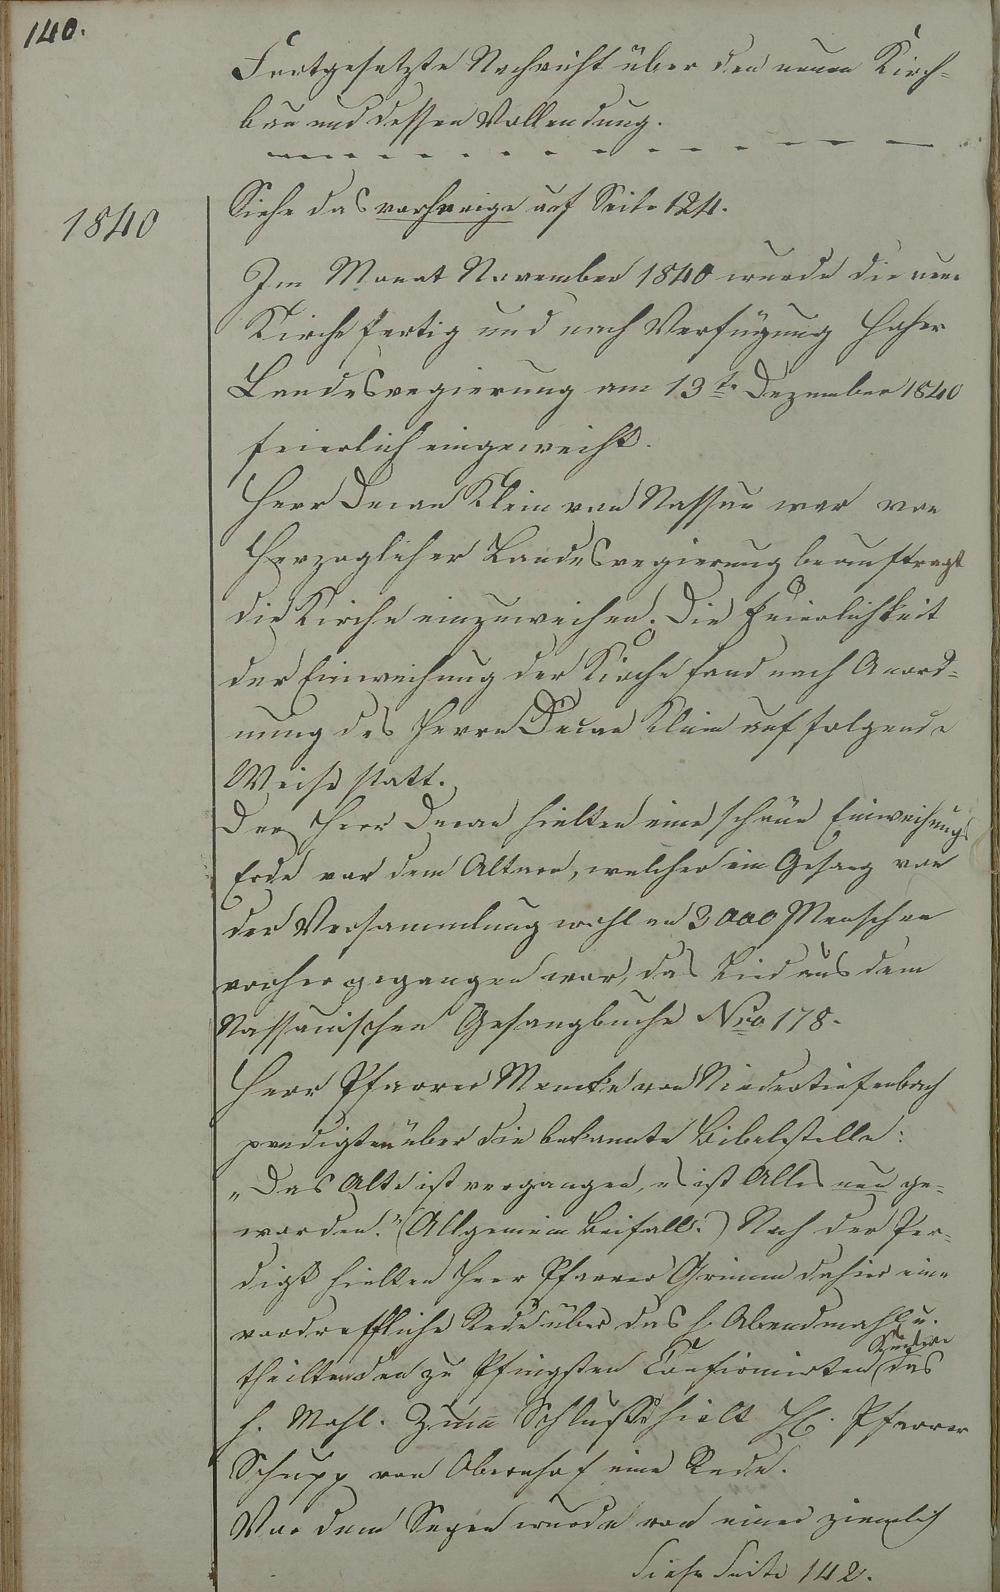 140.
Fortgesetzte Nachricht über den neuen Kirch-
bau und dessen Vollendung.
1840
Siehe das vorherige auf Seite 124.
Im Monat November 1840 wurde die neue
Kirche fertig und nach Verfügung hoher
Landesregierung am 13te Dezember 1840
feierlich eingeweiht.
Herr Decan Klein von Nassau war von
Herzoglicher Landesregierung beauftragt
die Kirche einzuweihen. Die Feierlichkeit
der Einweihung der Kirche fand nach Anord-
nung des Herrn Decan Klein auf folgende
Weise statt.
Der Herr Decan hielten eine schöne Einweihungs
Rede vor dem Altare, welcher ein Gesang von
der Versammlung wohl an 3000 Menschen
vorher gegangen war, das Lied aus dem
Nassauischen Gesangbuche Nro 178.
Herr Pfarrer Mencke von Niedertiefenbach
predigten über die bekannte Bibelstelle:
„Das Alte ist vergangen, es ist Alles neu ge-
worden." (Allgemein Beifall.) Nach der Pre-
digt hielten Herr Pfarrer Grimm dahier eine
vordreffliche Rede über das h. Abendmahl u.
theilten den zu Pfingsten Confirmirten das
h. Mahl. Zum Schlusse hielt H. Pfarrer
Schupp von Obernhof eine Rede.
Vor dem Segen wurde von einer ziemlich
Siehe Seite 142.